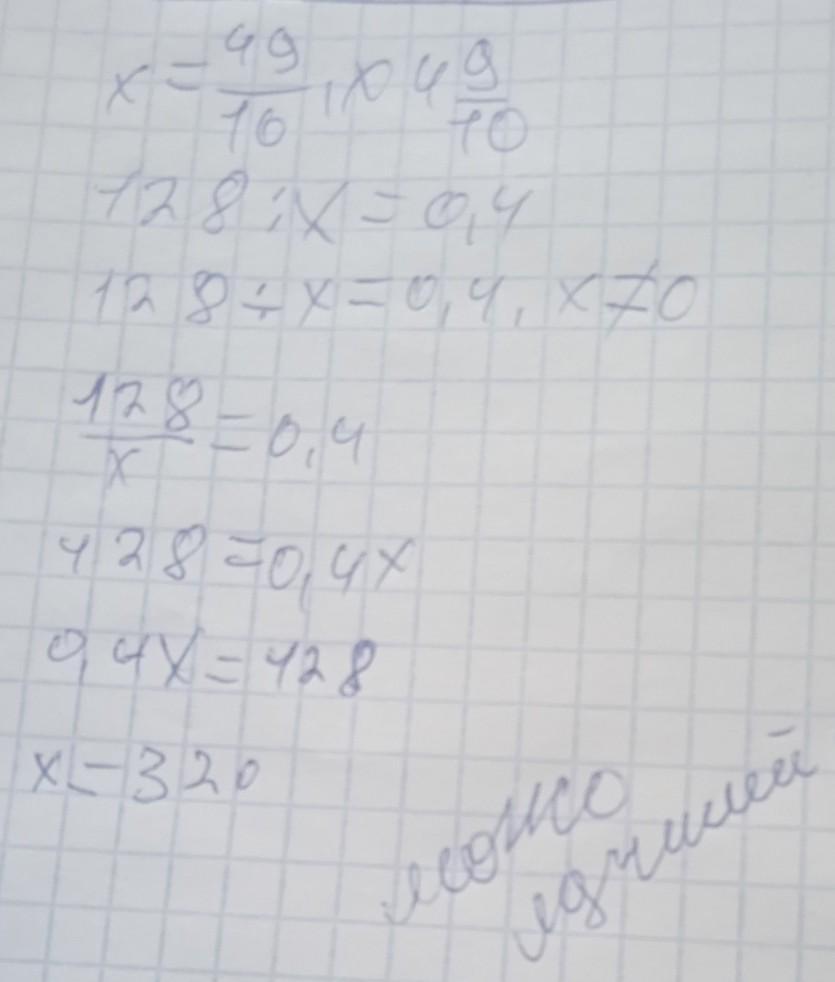 x = 49/10, x 4 9/10
128 : x = 0,4
128 ÷ x = 0,4, x ≠ 0
128/x = 0,4
128 = 0,4x
0,4x = 128
x = 320
можно